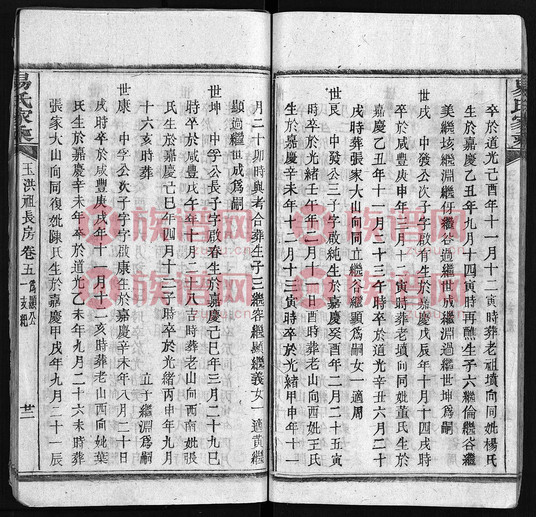 易氏家乘
卒於道光己酉年十一月十二寅時葬老墳墳向同妣楊氏
生於嘉慶乙丑年九月十四寅時再醮生子六繼倫繼谷繼
美繼垓繼淵繼任繼谷過繼世咸繼淵過繼世坤為嗣
世戌 中發公次子字啟有生於嘉慶戊辰年十月十四戌時
卒於咸豐庚申年三月十寅時葬老墳向同妣董氏生於
嘉慶乙丑年十一月十三午時卒於道光辛丑六月二十
戌時葬張家大山向同立繼谷繼顯為嗣女一適周
世艮 中發公三子字啟純生於嘉慶癸酉年二月二十五寅
時卒於光緒壬午年 月 日酉時葬老山向西妣王氏
生於嘉慶辛未年十二月十三寅時卒於光緒甲申年十一
月二十卯時與考合葬生子三繼容繼顯繼義女一適黃繼
顯過繼世成為嗣
世坤 中孚公長子字啟春生於嘉慶己巳年三月二十九巳
時卒於咸豐戊午年十月二十八吉時葬老山向西南妣張
氏生於嘉慶己巳年四月十 時卒於光緒丙申年九月
十六亥時葬 立子繼淵為嗣
世康 中孚公次子字啟康生於嘉慶辛未年八月二十日
戌時卒於咸豐庚戌年十一月十二亥時葬老山西向妣葉
氏生於嘉慶辛未年 卒於道光乙未年九月二十六未時葬
張家大山向同復娶陳氏生於嘉慶甲戌年九月二十一辰
易氏家乘
玉洪祖長房卷五
為顯公
一支紀
廿二
族谱网